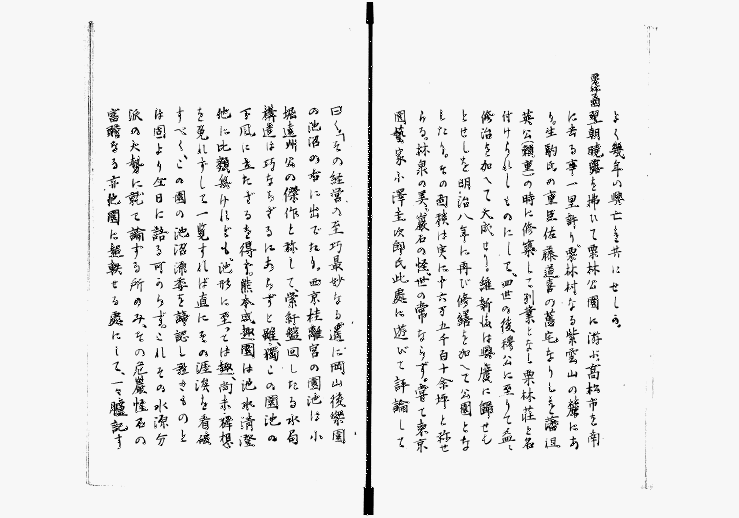 よく幾年の興亡を共にせしう。
栗林公園
翌朝曉露を拂いて栗林公園に游ぶ高松市を南
に去る事一里許り栗林村なる紫雲山の麓にあ
り。生駒氏の重臣佐藤道喜の舊宅なりしを藩祖
英公頼重の時に修築して別業となし栗林莊と名
付けられしものにして、四世の後穆公に至りて益々
修治を加へて大成せり。維新後は興廢に歸せむ
とせしを明治八年に再び修繕を加へて公園とな
したり。その面積は実に十六万五千百十余坪と称せ
らる。林泉の美、巖石の怪、世の常ならず。嘗て東京
園藝家小澤圭次郎氏此處に遊びて評論して
曰く「その経営の至巧最妙なる遙に岡山後樂園
の池沼の右に出でたり。西京桂離宮の園池は小
堀遠州公の傑作と称して、縈紆盤回したる水局
構造は巧ならざるにあらずと雖、獨この園池の
下風に立たざるを得ず。熊本成趣園は池水清澄
他に比類無けれども、池形に至ては趣、尚未裸想
を免れずして一覧すれば直にその涯涘を看破
すべく、この園の池沼漂渺を諦認し難きものと
は固より仝日に語る可らず。これその水源分
派の大勢に就て論ずる所のみ、その危巖怪石の
富贍なる亦他園に超軼せる處にして、一々臚記す